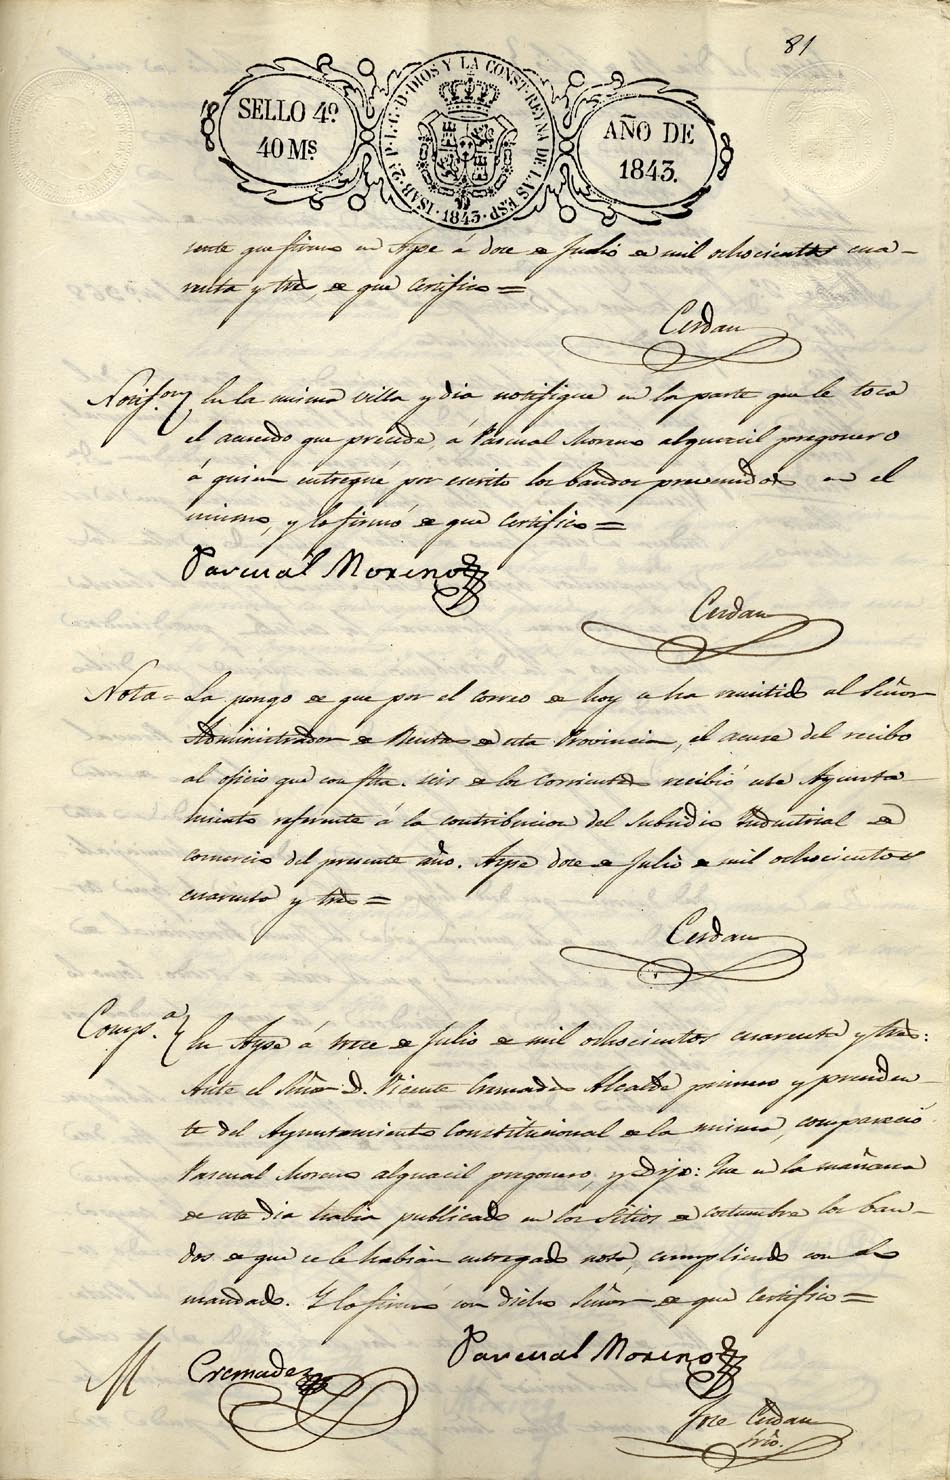 81
SELLO 4º.
40 Ms.
ISAB. 2ª. P. L. G. D. DIOS Y LA CONST. REYNA DE LAS ESP.
1843
AÑO DE
1843.
sente que firmo en Aspe á doce de Julio de mil ochocientos cua-
renta y tres, de que Certifico =
Cerdan
Notif.on En la misma villa y dia notifique en la parte que le toca
el acuerdo que precede á Pascual Moreno alguacil pregonero
á quien entregué por escrito los bandos prevenidos en el
mismo, y lo firmó de que Certifico =
Pascual Moreno
Cerdan
Nota = La pongo de que por el correo de hoy se ha remitido al Señor
Administrador de Rentas de esta Provincia, el acuse del recibo
al oficio que con fha. seis de los Corrientes recibió este Ayunta-
miento referente á la contribucion del Subsidio Industrial de
comercio del presente año. Aspe doce de Julio de mil ochocientos
cuarenta y tres =
Cerdan
Comp.a En Aspe á trece de Julio de mil ochocientos cuarenta y tres:
Ante el Señor D. Vicente Cremades Alcalde primero y presiden-
te del Ayuntamiento Constitucional de la misma, compareció
Pascual Moreno alguacil pregonero, y dijo: Que en la mañana
de este dia habia publicado en los Sitios de costumbre los ban-
dos de que se le habian entregado nota, cumpliendo con lo
mandado. Y lo firmó con dicho Señor de que Certifico =
Cremades
Pascual Moreno
Jose Cerdan
srio.